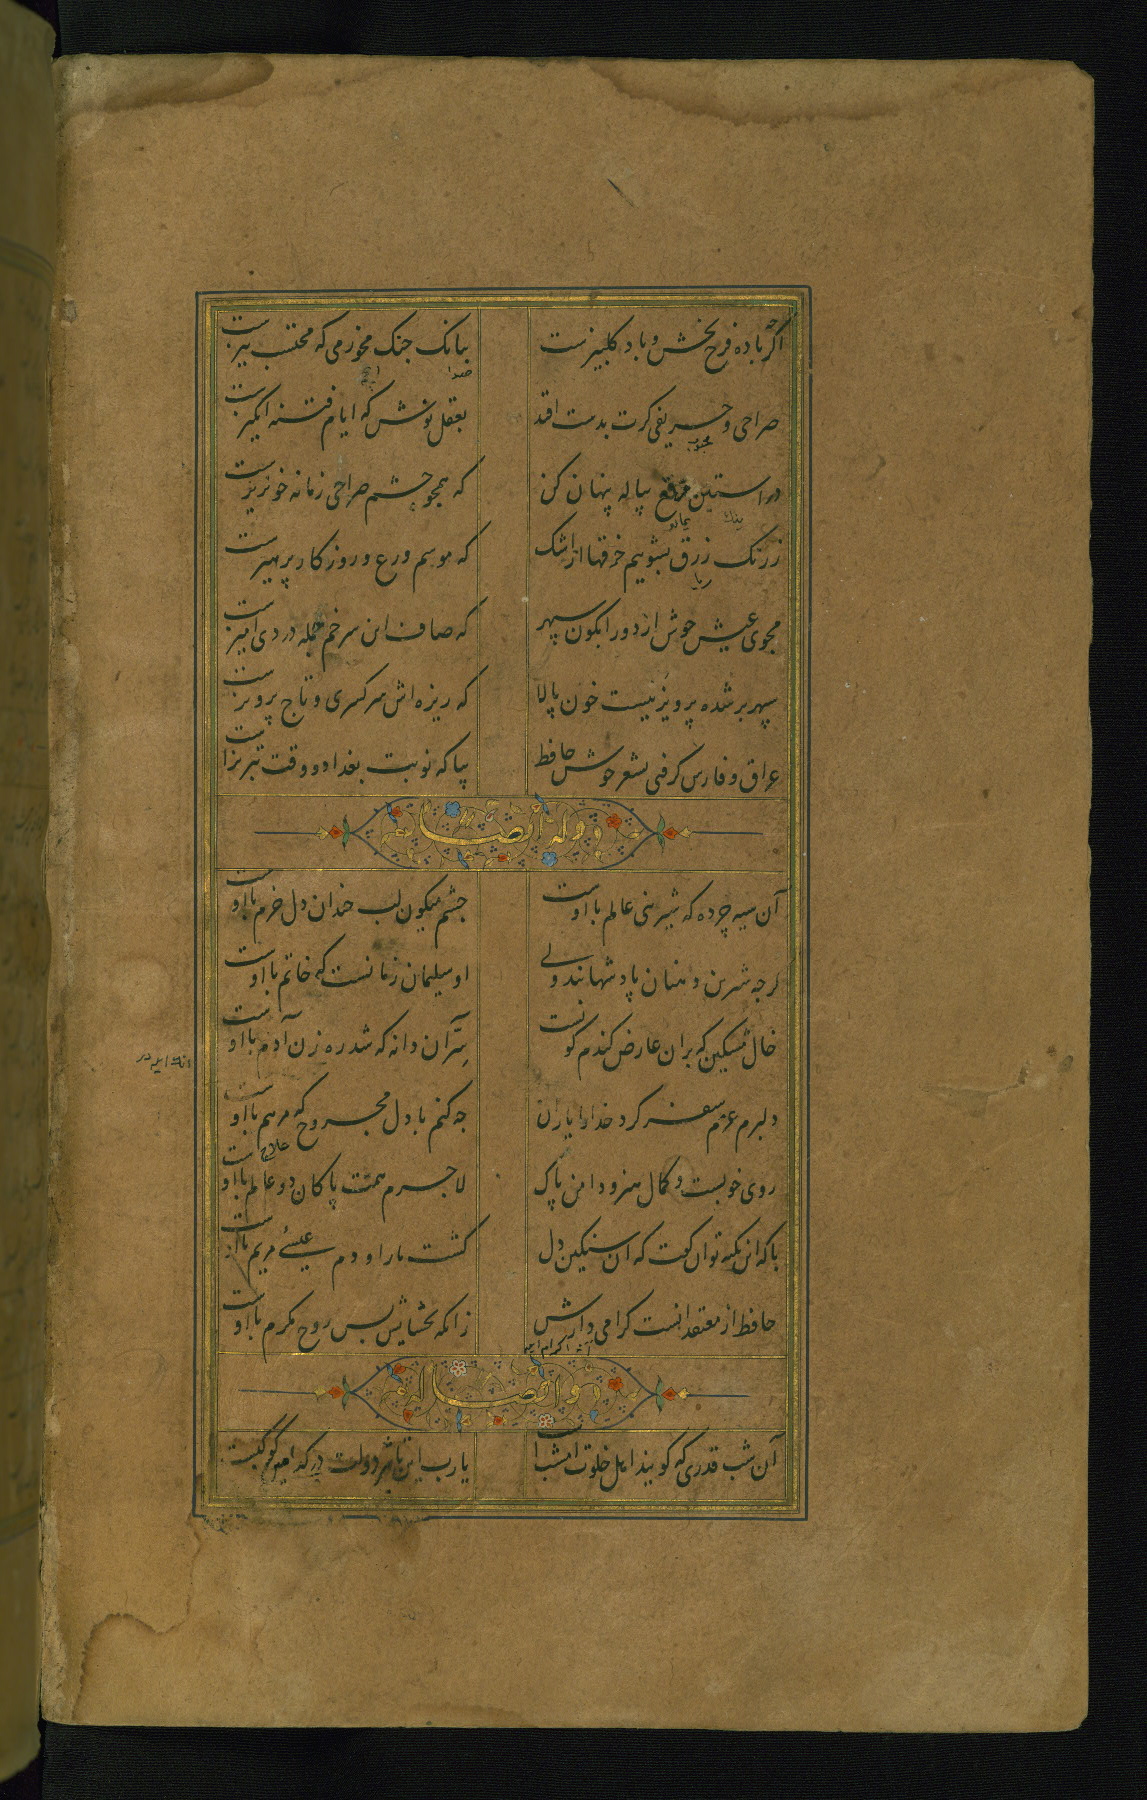 اگرچه باده فرح بخش و باد کلبیزست بیانک جنک مخور می که محتسب تیزست
صراحی و حریفی کرت بدست افتد بعقل نوش که ایام فتنه انکیزست
در استین مرقع پیاله پنهان کن که همچو چشم صراحی زمانه خونریزست
زرنک زرق بشوییم خرقها از اشک که موسم ورع و روزکار پرهیزست
مجوی عیش خوش از دور ابکون سپهر که صاف این سر خم جمله دردی امیزست
سپهر بر شده پرویزنیست خون پالا که ریزه اش سر کسری و تاج پرویزست
عراق و فارس کرفتی بشعر خوش حافظ بیا که نوبت بغداد و وقت تبریزست
و له ایضا
آن سیه چرده که شیرینی عالم با اوست چشم میکون لب خندان دل خرم با اوست
کرچه شیرین دهنان پادشهانند ولی او سلیمان زمانست که خاتم با اوست
خال مشکین که بران عارض کندم کونست سرّ آن دانه که شد ره زن آدم با اوست
دلبرم عزم سفر کرد خدا را یاران چه کنم با دل مجروح که مرهم با اوست
روی خوبست و کمال هنر و دامن پاک لاجرم همت پاکان دو عالم با اوست
با که این نکته توان کفت که ان سنکین دل کشت مارا و دم عیسئ مریم با اوست
حافظ از معتقدانست کرامی دارش زانکه بخشایش بس روح مکرم با اوست
و ایضا له
آن شب قدری که کویند اهل خلوت امشبست یارب این تاثیر دولت در کدامین کوکبست